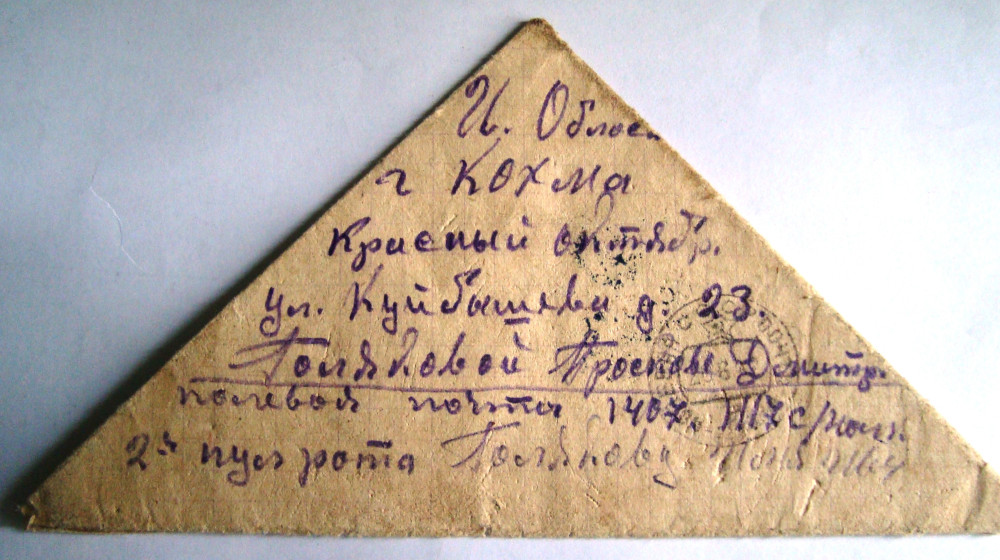 И. Облас
г Кохма
Красный октябр.
ул. Куйбышева д. 23.
Поляковой Просковье Дмитр.
полевой почта 1407,
2й пул рота Полякову